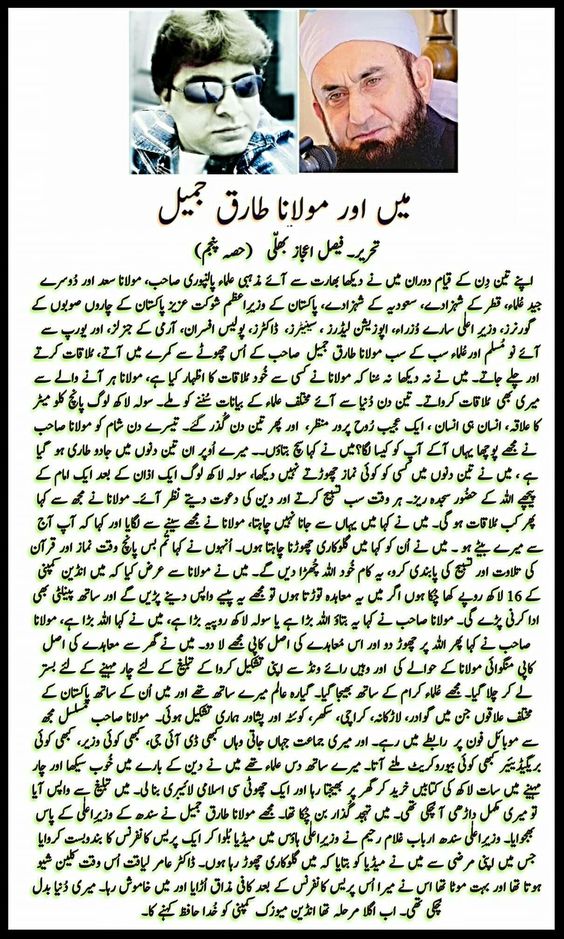 میں اور مولانا طارق جمیل
تحریر۔ فیصل اعجاز بھٹی (حصہ پنجم)
اپنے تین دِن کے قیام دوران میں نے دیکھا بھارت سے آئے مذہبی علماء پالنپوری صاحب، مولانا سعد اور دُوسرے
جید عُلماء، قطر کے شہزادے، سعودیہ کے شہزادے، پاکستان کے وزیراعظم شوکت عزیز پاکستان کے چاروں صوبوں کے
گورنرز، وزیر اعلٰی سارے وُزراء، اپوزیشن لیڈرز، سینیٹرز، ڈاکٹرز، پولیس افسران، آرمی کے جنرلز، اور یورپ سے
آئے نو مُسلم اور عُلماء سب کے سب مولانا طارق جمیل صاحب کے اُس چھوٹے سے کمرے میں آتے، مُلاقات کرتے
اور چلے جاتے۔ میں نے نہ دیکھا نہ سُنا کہ مولانا نے کسی سے خُود مُلاقات کا اظہار کیا ہے، مولانا ہر آنے والے سے
میری بھی مُلاقات کرواتے۔ تین دن دُنیا سے آئے مختلف علماء کے بیانات سُننے کو ملے۔ سولہ لاکھ لوگ پانچ کلو میٹر
کا علاقہ، انسان ہی انسان، ایک عجیب رُوح پرور منظر، اور پھر تین دن گُذر گئے۔ تیسرے دن شام کو مولانا صاحب
نے مجھے پوچھا یہاں آکے آپ کو کیسا لگا؟ میں نے کہا سچ بتاؤں۔۔ میرے اُوپر ان تین دنوں میں جادو طاری ہو گیا
ہے، میں نے تین دنوں میں کسی کو کوئی نماز چھوڑتے نہیں دیکھا، سولہ لاکھ لوگ ایک اذان کے بعد ایک امام کے
پیچھے اللہ کے حضُور سجدہ ریز۔ ہر وقت سب تسبیح کرتے اور دین کی دعوت دیتے نظر آئے۔ مولانا نے مجھ سے کہا
پھر کب مُلاقات ہو گی۔ میں نے کہا میں یہاں سے جانا نہیں چاہتا، مولانا نے مجھے سینے سے لگایا اور کہا کہ آپ آج
سے میرے بیٹے ہو۔ میں نے اُن کو کہا میں گلوکاری چھوڑنا چاہتا ہوں۔ اُنہوں نے کہا تُم بس پانچ وقت نماز اور قرآن
کی تلاوت اور تسبیح کی پابندی کرو، یہ کام خُود اللہ چُھڑا دیں گے۔ میں نے مولانا سے عرض کیا کہ میں انڈین کمپنی
کے 16 لاکھ روپے کھا چُکا ہوں اگر میں یہ معاہدہ توڑتا ہوں تو مجھے یہ پیسے واپس دینے پڑیں گے اور ساتھ پینلٹی بھی
ادا کرنی پڑے گی۔ مولانا صاحب نے کہا یہ بتاؤ اللہ بڑا ہے یا سولہ لاکھ روپیہ بڑا ہے، میں نے کہا اللہ بڑا ہے، مولانا
صاحب نے کہا پھر اللہ پر چھوڑ دو اور اس مُعاہدے کی اصل کاپی مجھے لا دو۔ میں نے گھر سے معاہدے کی اصل
کاپی منگوائی مولانا کے حوالے کی اور وہیں رائے ونڈ سے اپنی تشکیل کروا کے تبلیغ کے لئے چار مہینے کے لئے بستر
لے کر چلا گیا۔ مجھے عُلماء کرام کے ساتھ بھیجا گیا۔ گیارہ عالم میرے ساتھ تھے اور میں اُن کے ساتھ پاکستان کے
مختلف علاقوں جن میں گوادر، لاڑکانہ، کراچی، سکھر، کوئٹہ اور پشاور ہماری تشکیل ہوئی۔ مولانا صاحب مُسلسل مجھ
سے موبائل فون پر رابطے میں رہے۔ اور میری جماعت جہاں جاتی وہاں کبھی ڈی آئی جی، کبھی کوئی وزیر، کبھی کوئی
بریگیڈیئر کبھی کوئی بیوروکریٹ ملنے آتا۔ میرے ساتھ دس علماء تھے میں نے دین کے بارے میں خُوب سیکھا اور چار
مہینے میں سات لاکھ کی کتابیں خرید کر گھر پر بھیجتا رہا اور ایک چھوٹی سی اسلامی لائبریری بنا لی۔ میں تبلیغ سے واپس آیا
تو میری مکمل داڑھی آ چکی تھی۔ میں تہجد گُذار بن چُکا تھا۔ مجھے مولانا طارق جمیل نے سندھ کے وزیراعلٰی کے پاس
بھجوایا۔ وزیراعلٰی سندھ ارباب غلام رحیم نے وزیراعلٰی ہاؤس میں میڈیا بُلوا کر ایک پریس کانفرنس کا بندوبست کروایا
جس میں اپنی مرضی سے میں نے میڈیا کو بتایا کہ میں گلوکاری چھوڑ رہا ہوں۔ ڈاکٹر عامر لیاقت اُس وقت کلین شیو
ہوتا تھا اور بہت موٹا تھا اس نے میرا اُس پریس کانفرنس کے بعد کافی مذاق اُڑایا اور میں خاموش رہا۔ میری دُنیا بدل
چُکی تھی۔ اب اگلا مرحلہ تھا انڈین میوزک کمپنی کو خُدا حافظ کہنے کا۔